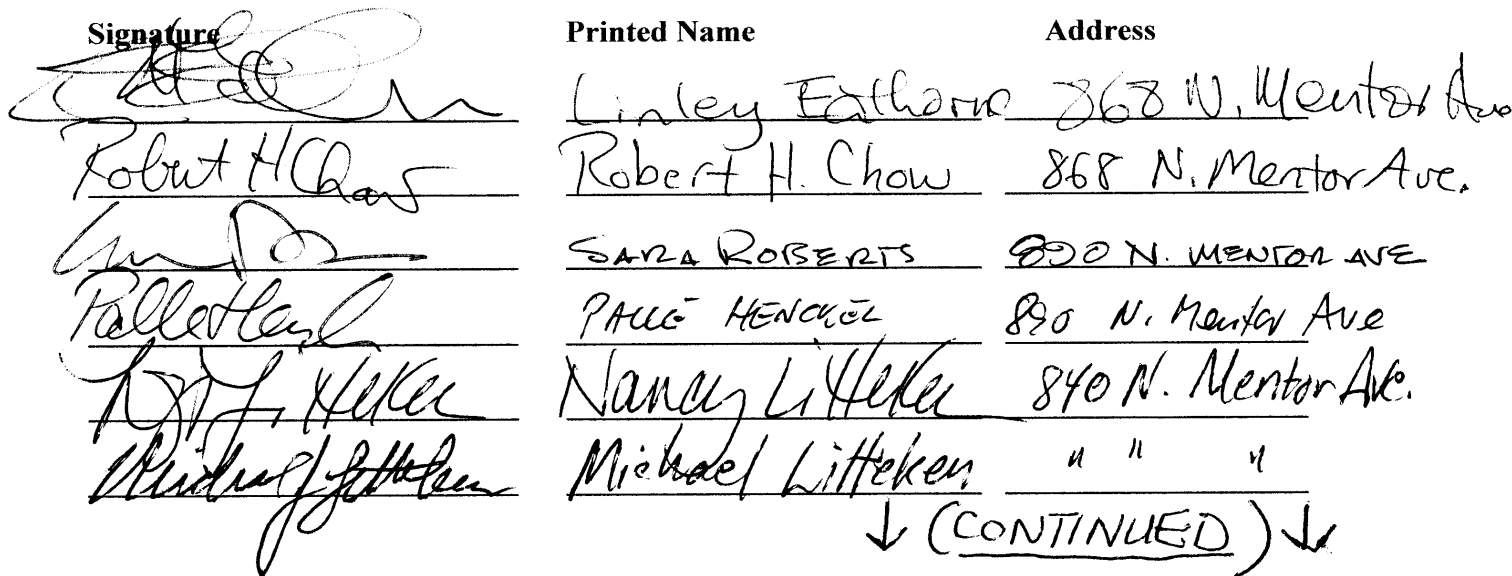 Signature Printed Name Address
Linley Eathorne 868 N. Mentor Ave
Robert H Chow Robert H. Chow 868 N. Mentor Ave.
SARA ROBERTS 890 N. MENTOR AVE
Palle Henckel PALLE HENCKEL 890 N. Mentor Ave
Litteken Nancy Litteken 840 N. Mentor Ave.
Michael J Litteken Michael Litteken " " "
↓ (CONTINUED) ↓